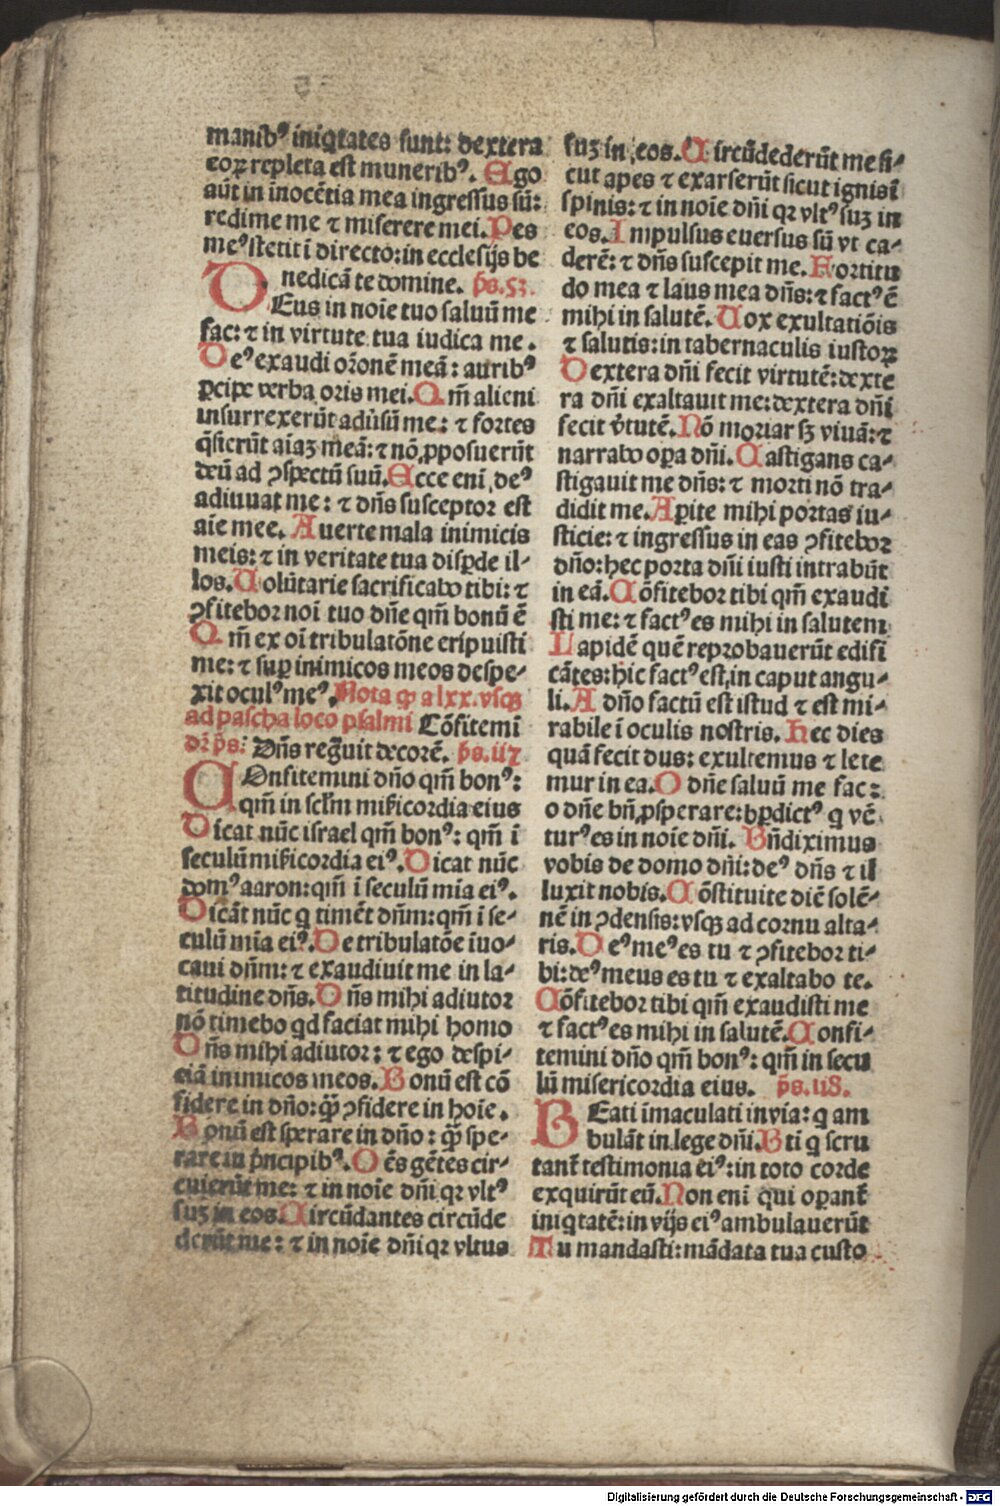 manibꝰ iniq̃tates sunt: dextera
eoꝝ repleta est muneribꝰ. Ego
aũt in inocẽtia mea ingressus sũ:
redime me ⁊ miserere mei. Pes
meꝰ stetit ĩ directo: in ecclesijs be
nedicã te domine. ps. 53.
DEus in noĩe tuo saluũ me
fac: ⁊ in virtute tua iudica me.
Deꝰ exaudi orõnẽ meã: auribꝰ
ꝑcipe verba oris mei. Qm̃ alieni
insurrexerũt aduͥsũ me: ⁊ fortes
q̃sierũt aĩaʒ meã: ⁊ nõ ꝓposuerũt
deũ ad ꝯspectũ suũ. Ecce eni deꝰ
adiuuat me: ⁊ dñs susceptor est
aĩe mee. Auerte mala inimicis
meis: ⁊ in veritate tua disꝑde il-
los. Volũtarie sacrificabo tibi: ⁊
ꝯfitebor noĩ tuo dñe qm̃ bonũ ẽ
Qm̃ ex oĩ tribulatõne eripuisti
me: ⁊ suꝑ inimicos meos despe-
xit oculꝰ meꝰ. Nota ꝙ a lxx. vsqꝫ
ad pascha loco psalmi Cõfitemĩ
dr̃ ps: Dñs regͣuit decorẽ. ps. 117
COnfitemini dño qm̃ bonꝰ:
qm̃ in sclm̃ mĩsicordia eius
Dicat nũc israel qm̃ bonꝰ: qm̃ ĩ
seculũ mĩsicordia eiꝰ. Dicat nũc
domꝰ aaron: qm̃ ĩ seculũ mĩa eiꝰ.
Dicãt nũc q timẽt dñm: qm̃ ĩ se-
culũ mĩa eiꝰ. De tribulatõe ĩuo-
caui dñm: ⁊ exaudiuit me in la-
titudine dñs. Dñs mihi adiutor
nõ timebo qd faciat mihi homo
Dñs mihi adiutor: ⁊ ego despi-
ciã inimicos meos. Bonũ est cõ
fidere in dño: q̃ꝫ ꝯfidere in hoĩe.
Bonũ est sperare in dño: q̃ꝫ spe-
rare in pͥncipibꝰ. Oẽs gẽtes cir-
cuierũt me: ⁊ in noĩe dñi qꝛ vltꝰ
suʒ in eos. Circũdantes circũde
derũt me: ⁊ in noĩe dñi qꝛ vltus
suʒ in eos. Circũdederũt me si-
cut apes ⁊ exarserũt sicut ignis ĩ
spinis: ⁊ in noĩe dñi qꝛ vltꝰ suʒ in
eos. Impulsus euersus sũ vt ca-
derẽ: ⁊ dñs suscepit me. Fortitu
do mea ⁊ laus mea dñs: ⁊ factꝰ ẽ
mihi in salutẽ. Uox exultatiõis
⁊ salutis: in tabernaculis iustoꝝ
Dextera dñi fecit virtutẽ: dexte
ra dñi exaltauit me: dextera dñi
fecit vͥtutẽ. Nõ moriar sʒ viuã: ⁊
narrabo oꝑa dñi. Castigans ca-
stigauit me dñs: ⁊ morti nõ tra-
didit me. Aꝑite mihi portas iu-
sticie: ⁊ ingressus in eas ꝯfitebor
dño: hec porta dñi iusti intrabũt
in eã. Cõfitebor tibi qm̃ exaudi
sti me: ⁊ factꝰ es mihi in salutem
Lapidẽ quẽ reprobauerũt edifi
cãtes: hic factꝰ est, in caput angu-
li. A dño factũ est istud ⁊ est mi-
rabile ĩ oculis nostris. Hec dies
quã fecit dus: exultemus ⁊ lete
mur in ea. O dñe saluũ me fac:
o dñe bñ ꝓsperare: bn̄dictꝰ q vẽ
turꝰ es in noĩe dñi. Bñdiximus
vobis de domo dñi: deꝰ dñs ⁊ il
luxit nobis. Cõstituite diẽ solẽ-
nẽ in ꝯdensis: vsqꝫ ad cornu alta-
ris. Deꝰ meꝰ es tu ⁊ ꝯfitebor ti-
bi: deꝰ meus es tu ⁊ exaltabo te.
Cõfitebor tibi qm̃ exaudisti me
⁊ factꝰ es mihi in salutẽ. Confi-
temini dño qm̃ bonꝰ: qm̃ in secu
lũ misericordia eius. ps. 118.
BEati ĩmaculati in via: q am
bulãt in lege dñi. Bti q scru
tant̃ testimonia eiꝰ: in toto corde
exquirũt eũ. Non eni qui oꝑant̃
iniqtatẽ: in vijs eiꝰ ambulauerũt
Tu mandasti: mãdata tua custo
Digitalisierung gefördert durch die Deutsche Forschungsgemeinschaft - DFG